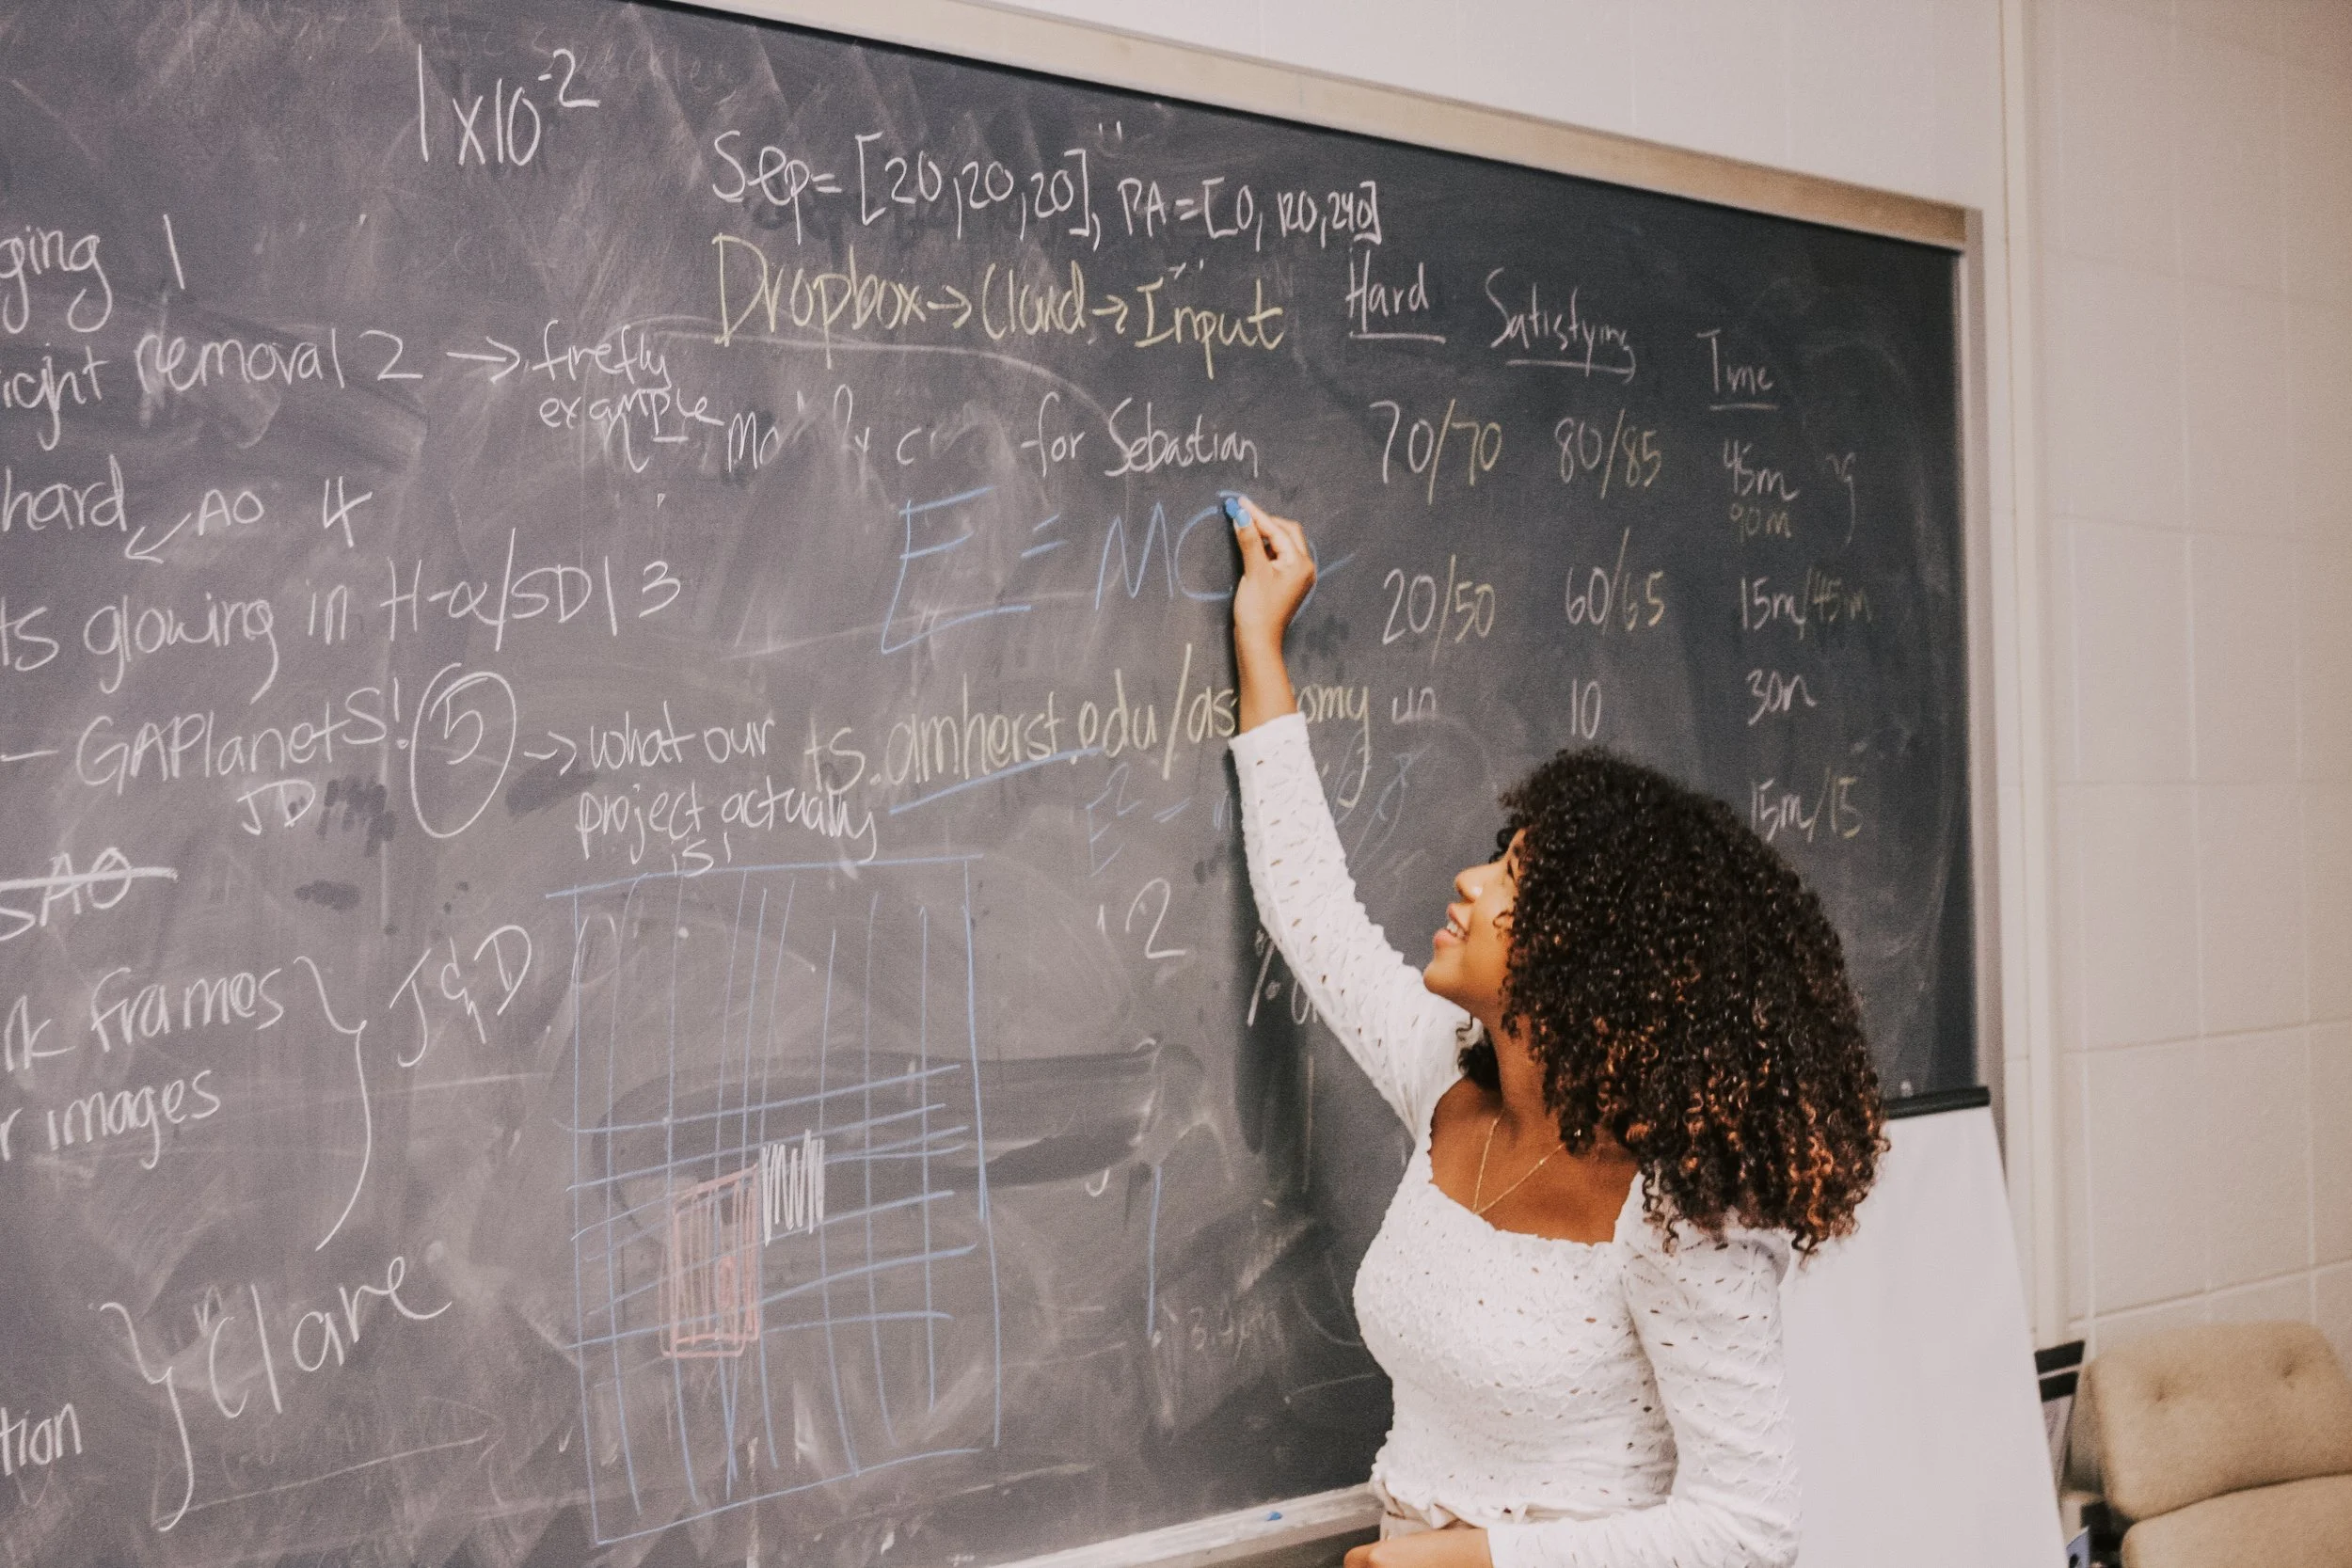 1x10^-2
Sep=[20,20,20], PA=[0,120,240]
Dropbox→Cloud→Input
Hard Satisfying Time
ging 1
ight removal 2 → firefly
example
for Sebastian
70/70 80/85 45m
90m
hard AO 4
E = MC
ts glowing in H-α/SDI 3
20/50 60/65 15m/45m
- GAPlanetS! 5 → what our
project actually
is!
JD
ts.amherst.edu/as omy
10 30m
15m/15
SAO
12
rk frames
r images
J&D
Clare
tion
3.4